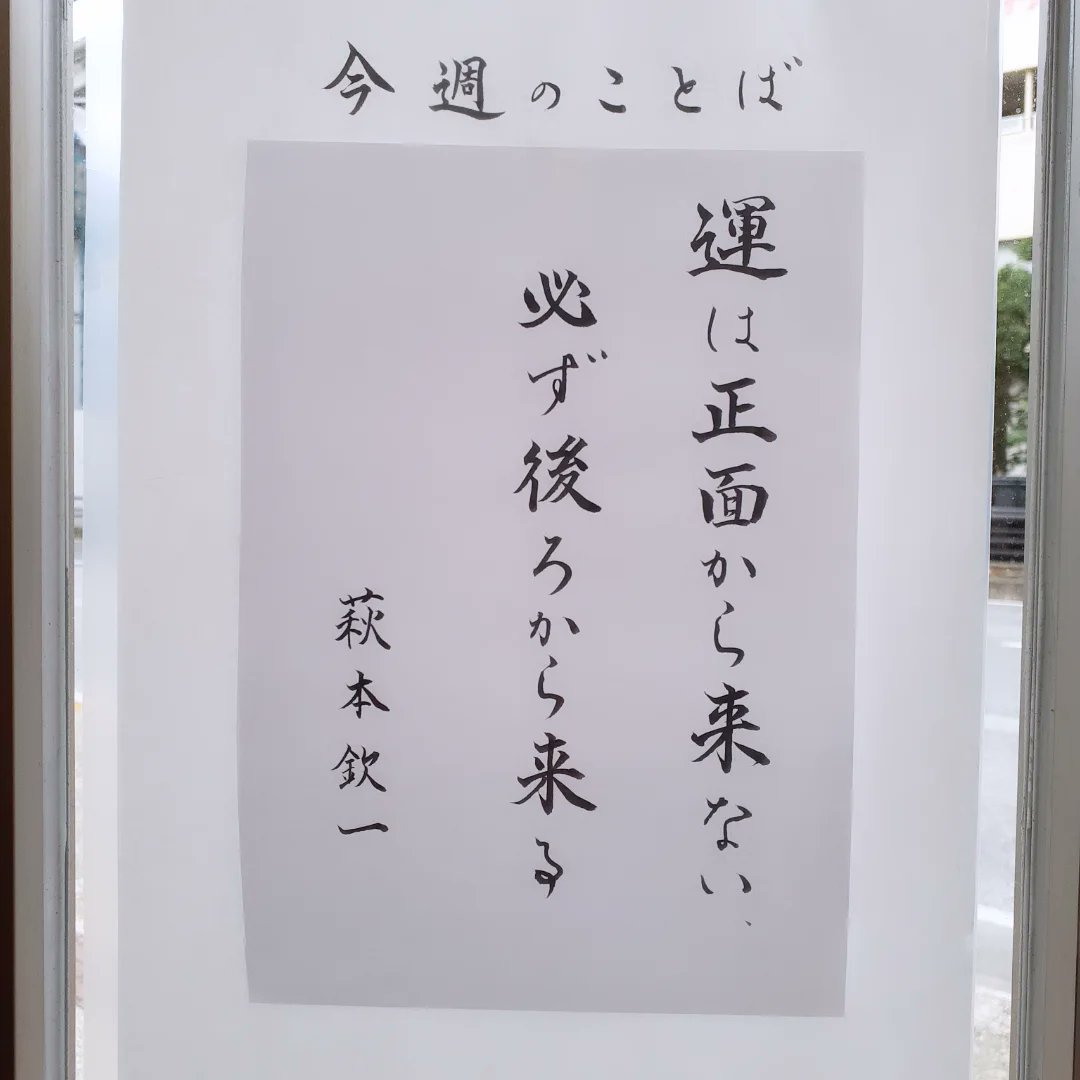 今週のことば
運は正面から来ない、
必ず後ろから来る
萩本欽一